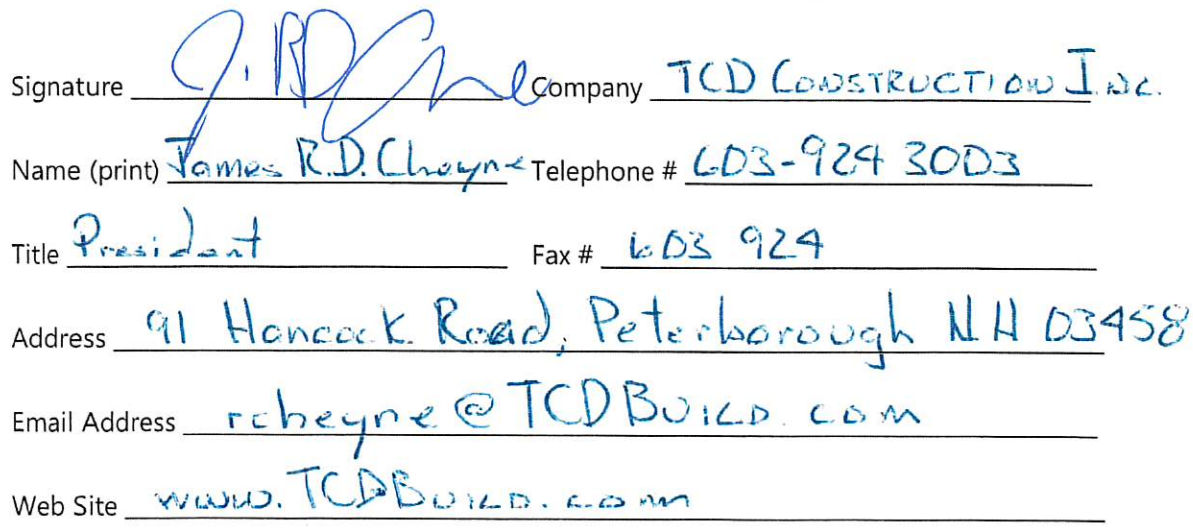 Signature J. RD Chne Company TCD CONSTRUCTION INC.
Name (print) James R.D. Cheyne Telephone # 603-924 3003
Title President Fax # 603 924
Address 91 Hancock Road, Peterborough NH 03458
Email Address rcheyne@TCDBUILD.com
Web Site www.TCDBUILD.com